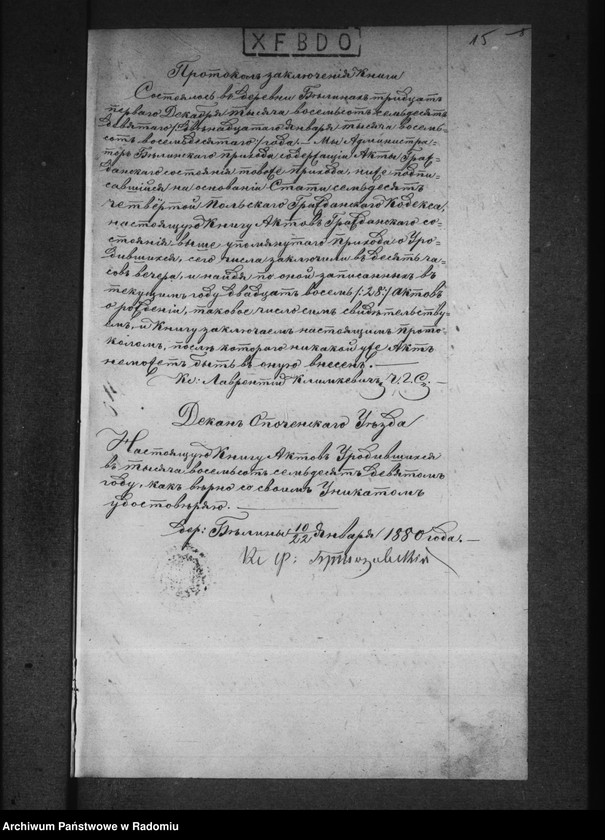 XFBDO
15
Протоколъ заключенія Книги
Состоялось въ деревни Бѣлинахъ тридцать
перваго Декабря тысяча восемьсотъ семьдесятъ
девятаго /двѣнадцатаго Января тысяча восемь-
сотъ восемьдесятаго/ года. Мы Администра-
торъ Бѣлинскаго прихода содержащій Акты Граж-
данскаго состоянія тогоже прихода, ниже подпи-
савшійся на основаніи Статьи семьдесятъ
четвёртой Польскаго Гражданскаго Кодекса,
настоящую Книгу Актовъ Гражданскаго со-
стоянія выше упомянутаго прихода о Уро-
дившихся, сего числа заключили въ десять ча-
совъ вечера, и найдя по оной записанныхъ въ
текущимъ году двадцать восемь /:28:/ Актовъ
о рожденіи, таковое число симъ свидѣтельству-
емъ, и Книгу заключаемъ настоящимъ прото-
коломъ, послѣ котораго никакой уже Актъ
неможетъ быть въ оную внесенъ. —
Кс: Лаврентій Климкевичъ Ч. Г. С. —
Деканъ Опоченскаго Уѣзда
Настоящую Книгу Актовъ Уродившихся
въ тысяча восемьсотъ семьдесятъ девятомъ
году, какъ вѣрно со своимъ Уникатомъ
удостовѣряю. —
Дер: Бѣлины 10/22 Января 1880 года. —
Кс Ф:
Archiwum Państwowe w Radomiu